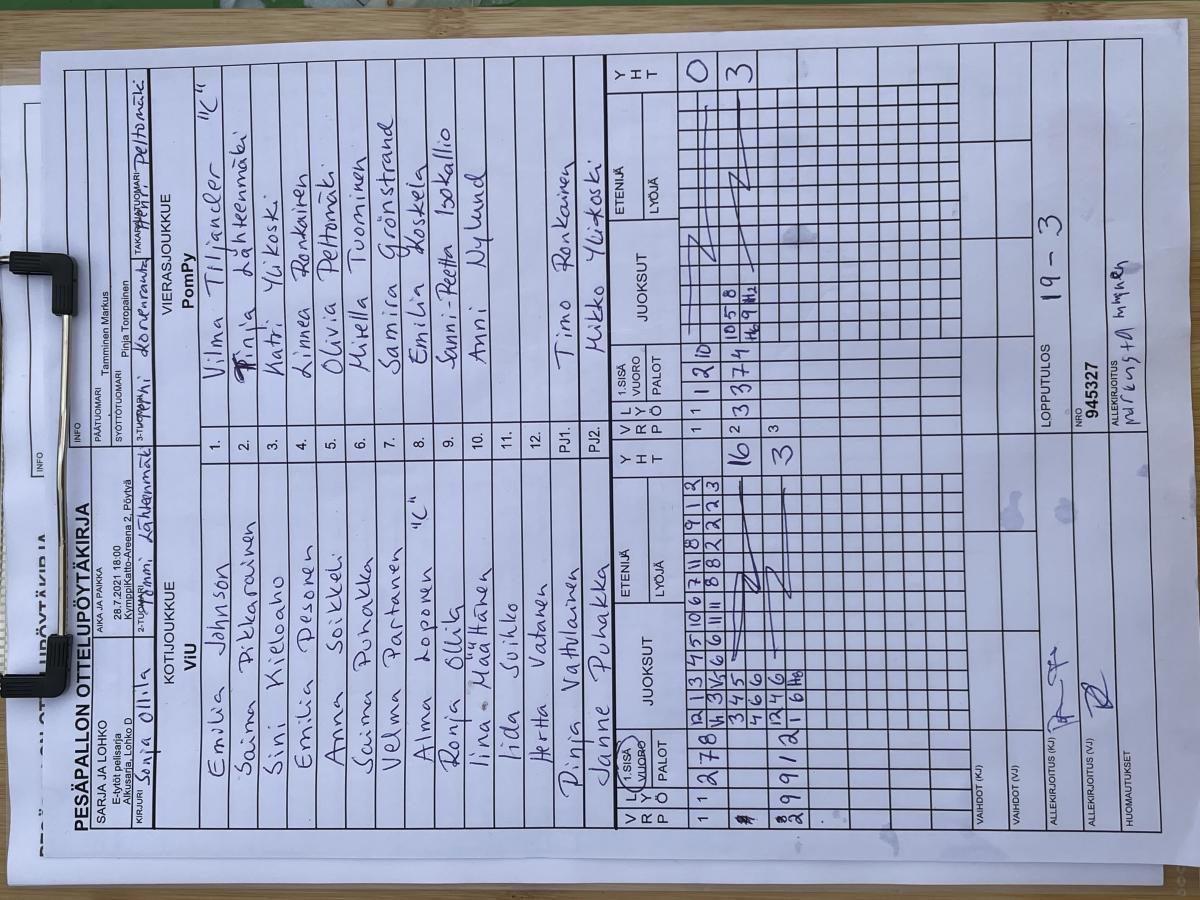 INFO
PESÄPALLON OTTELUPÖYTÄKIRJA
SARJA JA LOHKO
E-tytöt pelisarja
Alkusarja, Lohko D
AIKA JA PAIKKA
28.7.2021 18:00
KymppiKatto-Areena 2, Pöytyä
INFO
PÄÄTUOMARI Tamminen Markus
SYÖTTÖTUOMARI Pinja Toropainen
KIRJURI Sonja Ollila
2-TUOMARI Lähteenmäki
3-TUOMARI
TAKARAJATUOMARI Peltomäki
KOTIJOUKKUE
ViU
VIERASJOUKKUE
PomPy
Emilia Johnson 1. Vilma Tiljander "C"
Saima Pikkarainen 2. Pinja Lähteenmäki
Sini Kieloaho 3. Katri Ylikoski
Emilia Pesonen 4. Linnea Ronkainen
Anna Soikkeli 5. Olivia Peltomäki
Saima Puhakka 6. Mirella Tuominen
Velma Partanen 7. Samira Grönstrand
Alma Loponen "C" 8. Emilia Koskela
Ronja Ollila 9. Sanni-Reetta Isokallio
Iina Määttänen 10. Anni Nylund
Iida Suihko 11.
Hertta Vatanen 12.
Pinja Vattulainen PJ1. Timo Ronkainen
Janne Puhakka PJ2. Mikko Ylikoski
V R P L Y Ö 1.SISÄ VUORO PALOT JUOKSUT ETENIJÄ LYÖJÄ Y H T
V R P L Y Ö 1.SISÄ VUORO PALOT JUOKSUT ETENIJÄ LYÖJÄ Y H T
1 1 2 7 8 12 1 3 4 5 10 6 7 11 8 9 1 2
3 6 6 11 11 8 8 2 2 2 3
1 1 1 2 10 0
3 4 5 16
4 6 6
2 3 3 7 4 10 5 8 3
9
2 9 9 12 12 4 6 3
1 6
3
VAIHDOT (KJ)
VAIHDOT (VJ)
ALLEKIRJOITUS (KJ)
LOPPUTULOS 19 - 3
ALLEKIRJOITUS (VJ)
NRO
945327
HUOMAUTUKSET
ALLEKIRJOITUS